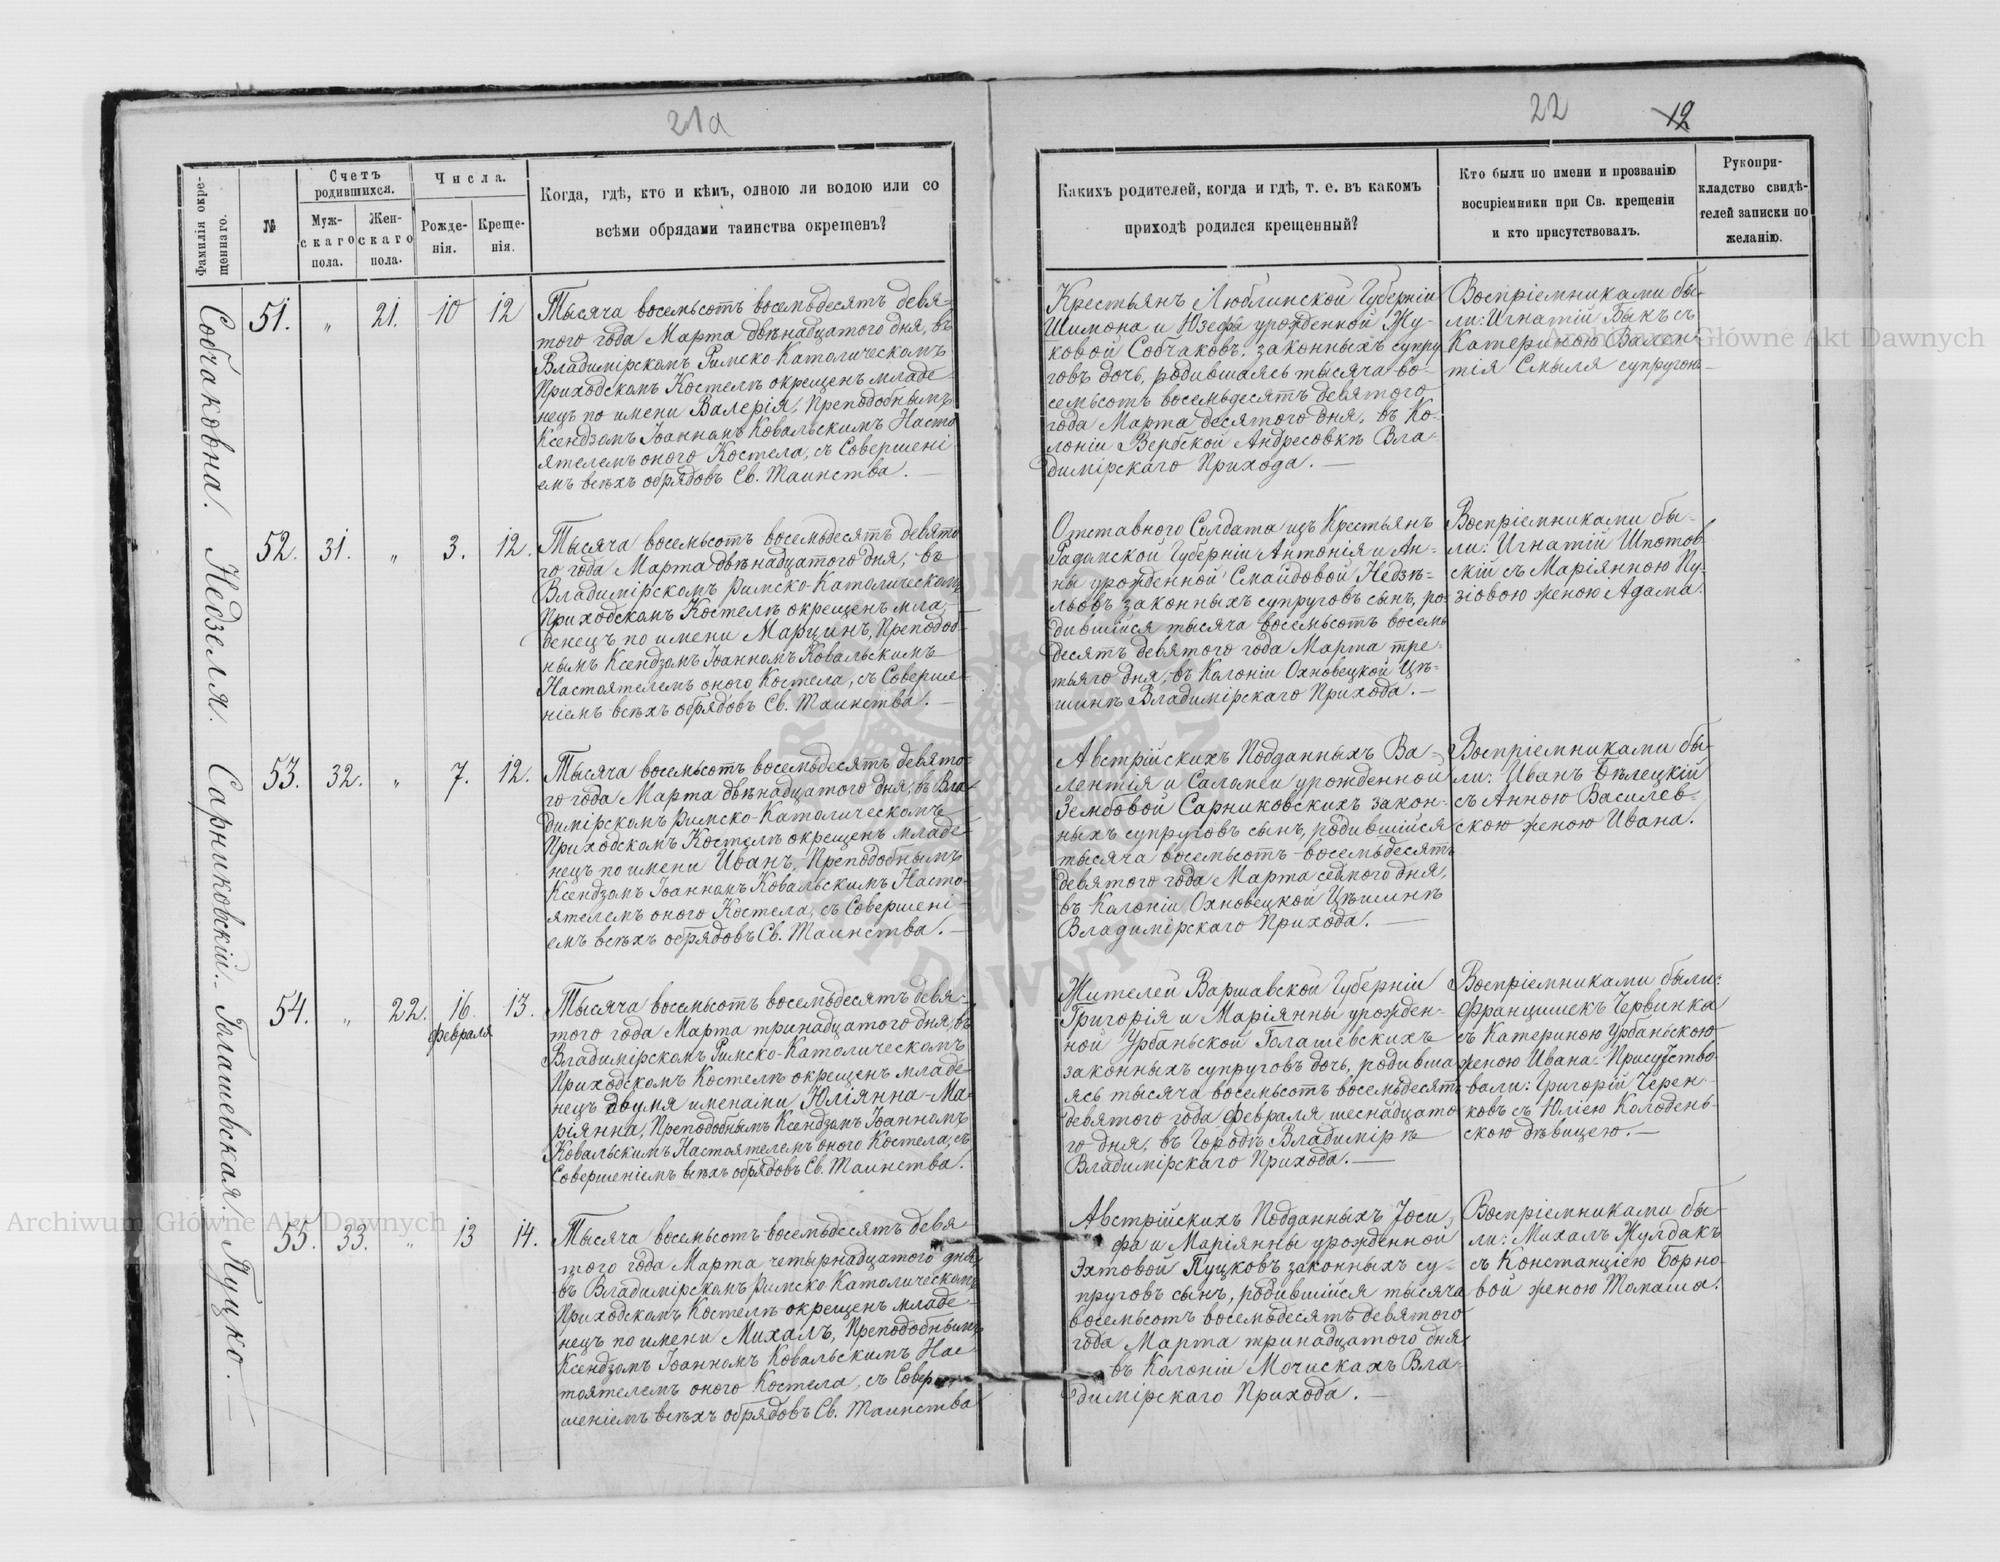 21а
Фамилія окре-
щеннаго.
№
Счетъ
родившихся.
Муж-
скаго
пола.
Жен-
скаго
пола.
Числа.
Рожде-
нія.
Креще-
нія.
Когда, гдѣ, кто и кѣмъ, одною ли водою или со
всѣми обрядами таинства окрещенъ?
Собчаковна.
51.
"
21.
10
12
Тысяча восемьсотъ восемьдесятъ девя-
того года Марта двѣнадцатого дня, въ
Владимірскомъ Римско-Католическомъ
Приходскомъ Костелѣ окрещенъ младе-
нецъ по имени Валерія, Преподобнымъ
Ксендзомъ Іоанномъ Ковальскимъ Насто
ятелемъ оного Костела, съ Совершені
емъ всѣхъ обрядовъ Св. Таинства. —
Недзеля.
52.
31.
"
3.
12.
Тысяча восемьсотъ восемьдесятъ девято
го года Марта двѣнадцатого дня, въ
Владимірскомъ Римско-Католическомъ
Приходскомъ Костелѣ окрещенъ мла-
денецъ по имени Марцинъ, Преподоб-
нымъ Ксендзомъ Іоанномъ Ковальскимъ
Настоятелемъ оного Костела, съ Соверше-
ніемъ всѣхъ обрядовъ Св. Таинства. —
Сарниковскій.
53.
32.
"
7.
12.
Тысяча восемьсотъ восемьдесятъ девято-
го года Марта двѣнадцатого дня, въ Вла-
димірскомъ Римско-Католическомъ
Приходскомъ Костелѣ окрещенъ младе
нецъ по имени Иванъ, Преподобнымъ
Ксендзомъ Іоанномъ Ковальскимъ Насто-
ятелемъ оного Костела, съ Совершені-
емъ всѣхъ обрядовъ Св. Таинства. —
Голашевская.
54.
"
22.
16.
февраля
13.
Тысяча восемьсотъ восемьдесятъ девя-
того года Марта тринадцатого дня, въ
Владимірскомъ Римско-Католическомъ
Приходскомъ Костелѣ окрещенъ младе
нецъ двумя именами Юліянна-Ма-
ріянна, Преподобнымъ Ксендзомъ Іоанномъ
Ковальскимъ Настоятелемъ оного Костела, съ
Совершеніемъ всѣхъ обрядовъ Св. Таинства.
Пуцко.
55.
33.
"
13
14.
Тысяча восемьсотъ восемьдесятъ девя
того года Марта четырнадцатого дня,
въ Владимірскомъ Римско Католическомъ
Приходскомъ Костелѣ окрещенъ младе-
нецъ по имени Михалъ, Преподобнымъ
Ксендзомъ Іоанномъ Ковальскимъ Нас-
тоятелемъ оного Костела, съ Совер-
шеніемъ всѣхъ обрядовъ Св. Таинства
22
12
Какихъ родителей, когда и гдѣ, т. е. въ какомъ
приходѣ родился крещенный?
Кто были по имени и прозванію
воспріемники при Св. крещеніи
и кто присутствовалъ.
Рукопри-
кладство свидѣ-
телей записки по
желанію.
Крестьянъ Люблинской Губерніи
Шимона и Юзефы урожденной Жу-
ковой Собчаковъ, законныхъ супру
говъ дочь, родившаясь тысяча во-
семьсотъ восемьдесятъ девятого
года Марта десятого дня, въ Ко-
лоніи Вербской Андресовкѣ Вла-
димірскаго Прихода. —
Воспріемниками бы-
ли: Игнатій Быкъ съ
Катериною Вален-
тія Смыля супругою. —
Отставного Солдата изъ Крестьянъ
Радомской Губерніи Антонія и Ан-
ны урожденной Смайдовой Недзѣ-
льовъ законныхъ супруговъ сынъ, ро-
дившійся тысяча восемьсотъ восемь
десятъ девятого года Марта тре-
тьяго дня, въ Колоніи Охновецкой Цѣ-
шинѣ Владимірскаго Прихода. —
Воспріемниками бы-
ли: Игнатій Шпотов
скій съ Маріянною Пу-
зіовою женою Адама.
Австрійскихъ Подданныхъ Ва-
лентія и Саломеи урожденной
Зембовой Сарниковскихъ закон-
ныхъ супруговъ сынъ, родившійся
тысяча восемьсотъ восемьдесятъ
девятого года Марта седмого дня,
въ Колоніи Охновецкой Цѣшинѣ
Владимірскаго Прихода. —
Воспріемниками бы-
ли: Иванъ Бѣлецкій
съ Анною Василев-
скою женою Ивана.
Жителей Варшавской Губерніи
Григорія и Маріянны урожден-
ной Урбаньской Голашевскихъ
законныхъ супруговъ дочь, родивша
ясь тысяча восемьсотъ восемьдесятъ
девятого года февраля шеснадцато
го дня, въ Городѣ Владимірѣ
Владимірскаго Прихода. —
Воспріемниками были:
Францишекъ Червинка
съ Катериною Урбаньскою
женою Ивана. Присутство
вали: Григорій Черен-
ковъ съ Юліею Колодень-
скою дѣвицею. —
Австрійскихъ Подданныхъ Іоси-
фа и Маріянны урожденной
Эхтовой Пуцковъ законныхъ су-
пруговъ сынъ, родившійся тысяча
восемьсотъ восемьдесятъ девятого
года Марта тринадцатого дня
въ Колоніи Мочискахъ Вла-
димірскаго Прихода. —
Воспріемниками бы-
ли: Михалъ Жулдакъ
съ Констанціею Борно-
вой женою Томаша.
Archiwum Główne Akt Dawnych
Archiwum Główne Akt Dawnych